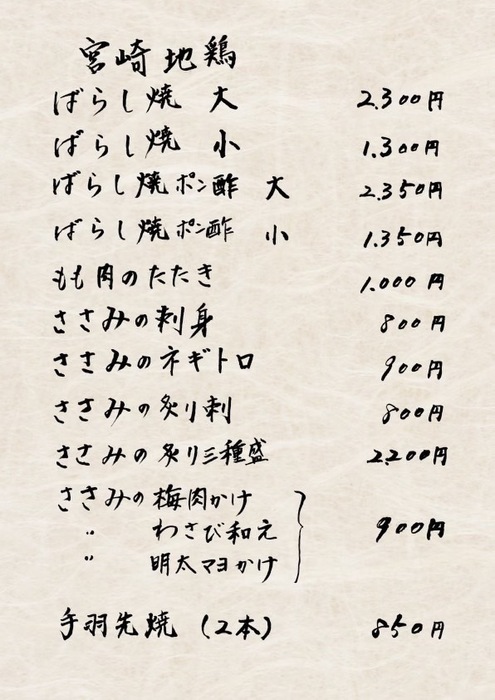 宮崎地鶏
ばらし焼 大 2.300円
ばらし焼 小 1.300円
ばらし焼ポン酢 大 2.350円
ばらし焼ポン酢 小 1.350円
もも肉のたたき 1.000円
ささみの刺身 800円
ささみのネギトロ 900円
ささみの炙り刺 800円
ささみの炙り三種盛 2.200円
ささみの梅肉かけ
〃 わさび和え 900円
〃 明太マヨかけ
手羽先焼 (2本) 850円